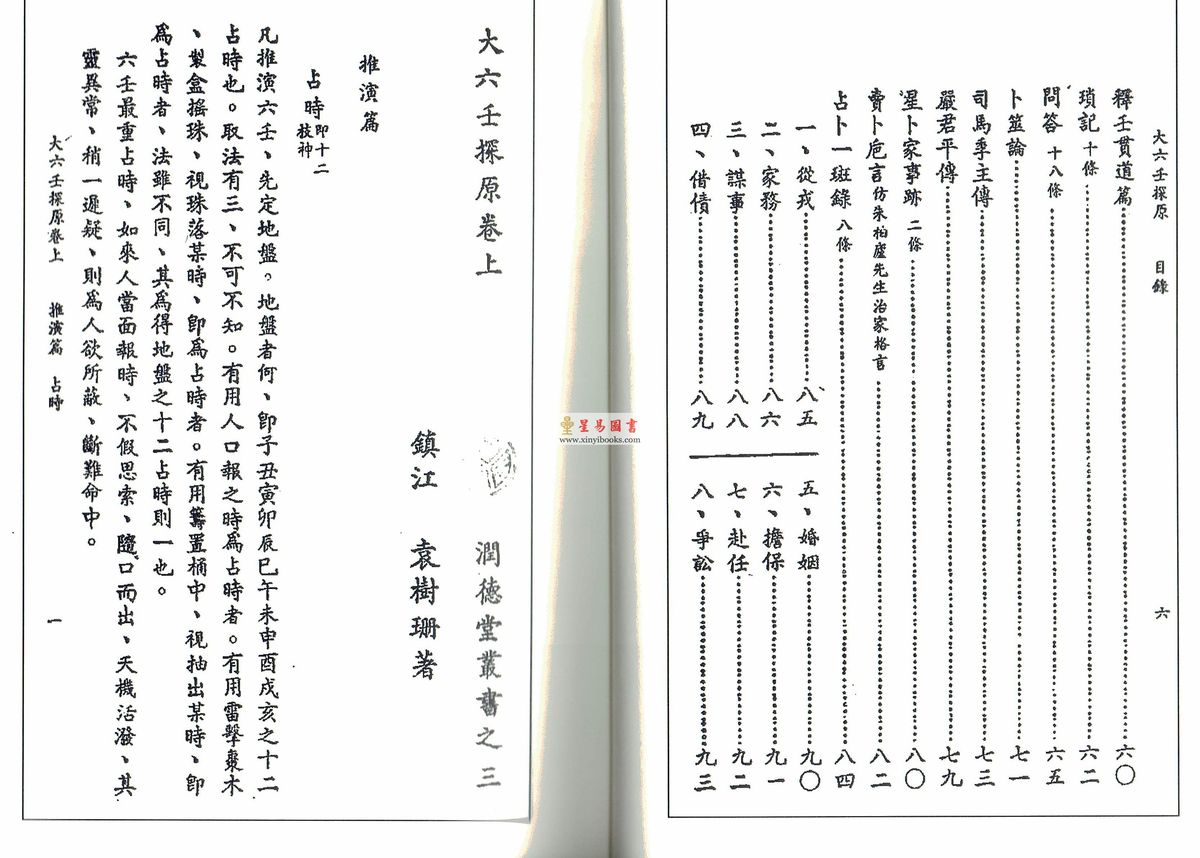 大六壬探原　目錄　六
釋壬貫道篇……六〇
瑣記十條……六二
問答十八條……六五
卜筮論……七一
司馬季主傳……七三
嚴君平傳……七九
星卜家事跡二條……八〇
賣卜巵言仿朱柏廬先生治家格言……八二
占卜一斑錄八條……八四
一、從戎……八五
二、家務……八六
三、謀事……八八
四、借債……八九
五、婚姻……九〇
六、擔保……九一
七、赴任……九二
八、爭訟……九三
星易圖書
www.xinyibooks.com
大六壬探原卷上　潤德堂叢書之三
鎮江　袁樹珊著
推演篇
占時即十二枝神
凡推演六壬、先定地盤。地盤者何、即子丑寅卯辰巳午未申酉戌亥之十二
占時也。取法有三、不可不知。有用人口報之時爲占時者。有用雷擊棗木
、製盒搖珠、視珠落某時、即爲占時者。有用籌置桶中、視抽出某時、即
爲占時者、法雖不同、其爲得地盤之十二占時則一也。
六壬最重占時、如來人當面報時、不假思索、隨口而出、天機活潑、其
靈異常、稍一遲疑、則爲人欲所蔽、斷難命中。
大六壬探原卷上　推演篇　占時　一